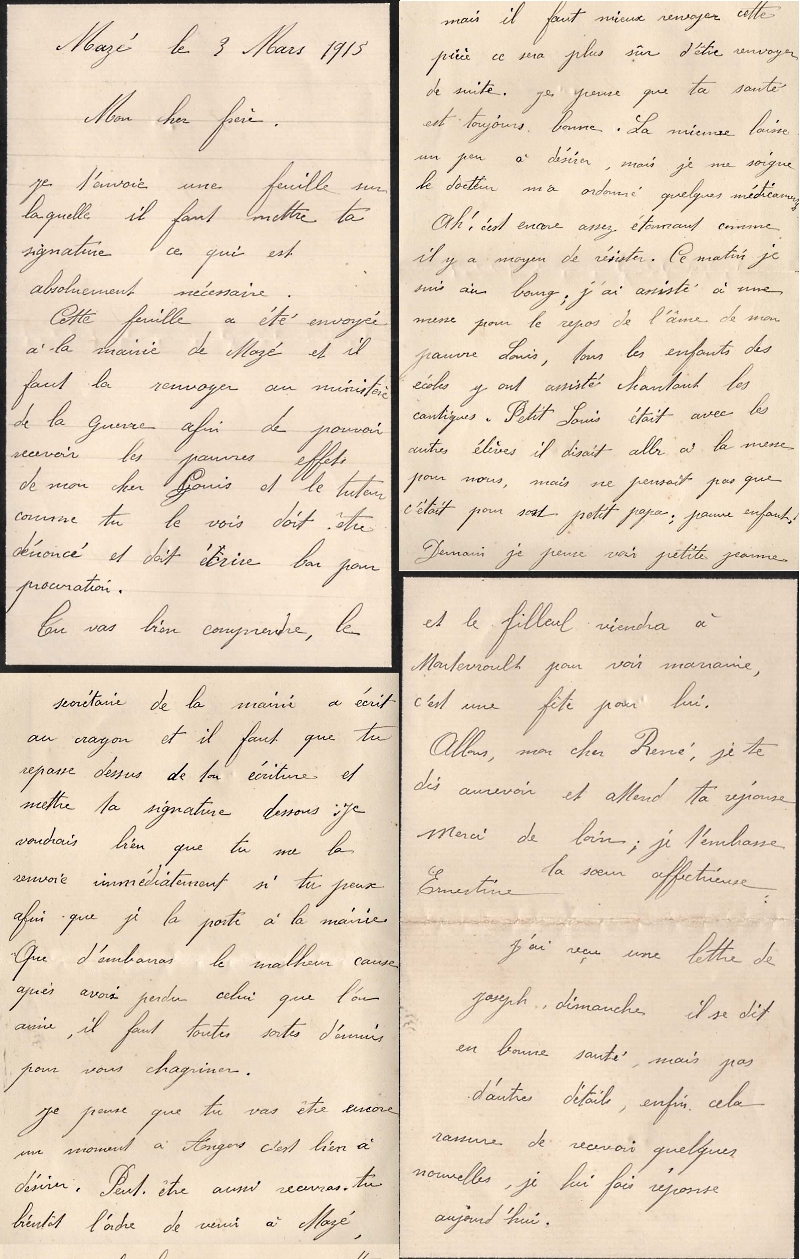 Mazé le 3 Mars 1915
Mon cher frère.
je t'envoie une feuille sur
laquelle il faut mettre ta
signature ce qui est
absoluement nécessaire.
Cette feuille a été envoyée
à la mairie de Mazé et il
faut la renvoyer au ministère
de la Guerre afin de pouvoir
recevoir les pauvres effets
de mon cher Louis et le tuteur
comme tu le vois doit être
dénoncé et doit écrire bon pour
procuration.
Tu vas bien comprendre, le
secrétaire de la mairie a écrit
au crayon et il faut que tu
repasse dessus de ton écriture et
mettre ta signature dessous ; je
voudrais bien que tu me la
renvoie immédiatement si tu peux
afin que je la porte à la mairie
Que d'embarras le malheur cause
après avoir perdu celui que l'on
aime, il faut toutes sortes d'ennuis
pour vous chagriner.
je pense que tu vas être encore
un moment à Angers c'est bien à
désirer. Peut-être aussi recevras-tu
bientôt l'ordre de venir à Mazé,
mais il faut mieux renvoyer cette
pièce ce sera plus sûr d'être renvoyer
de suite. je pense que ta santé
est toujours bonne. La mienne laisse
un peu à désirer, mais je me soigne
le docteur m'a ordonné quelques médicaments
Ah! c'est encore assez étonnant comme
il y a moyen de résister. Ce matin je
suis au bourg, j'ai assisté à une
messe pour le repos de l'âme de mon
pauvre Louis, tous les enfants des
écoles y ont assisté chantant les
cantiques. Petit Louis était avec les
autres élèves il disait aller à la messe
pour nous, mais ne pensait pas que
c'était pour son petit papa; pauvre enfant!
Demain je pense voir petite jeanne
et le filleul viendra à
Montevroult pour voir marraine,
c'est une fête pour lui.
Allons, mon cher René, je te
dis aurevoir et attend ta réponse
Merci de loin; je t'embrasse
ta sœur affectueuse
Ernestine
j'ai reçu une lettre de
joseph, dimanche il se dit
en bonne santé, mais pas
d'autres détails, enfin cela
rassure de recevoir quelques
nouvelles, je lui fais réponse
aujourd'hui.